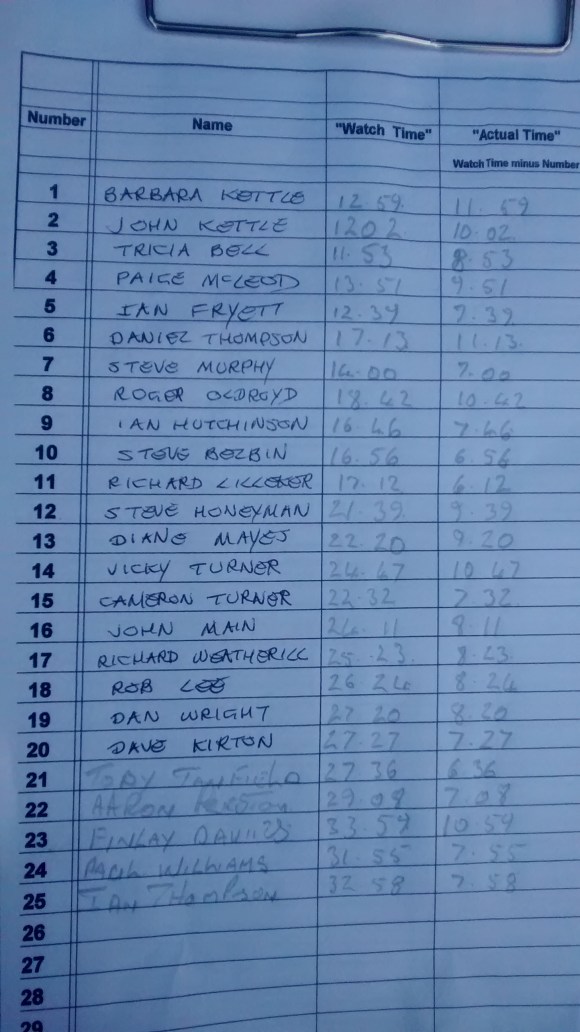 Number Name "Watch Time" "Actual Time"
Watch Time minus Number
1 BARBARA KETTLE 12.59 11.59
2 JOHN KETTLE 1202 10.02
3 TRICIA BELL 11.53 8.53
4 PAIGE MCLEOD 13.51 9.51
5 IAN FRYETT 12.39 7.39
6 DANIEL THOMPSON 17.13 11.13
7 STEVE MURPHY 14.00 7.00
8 ROGER OLDROYD 18.42 10.42
9 IAN HUTCHINSON 16 46 7.46
10 STEVE BELBIN 16.56 6.56
11 RICHARD 17.12 6.12
12 STEVE HONEYMAN 21.39 9.39
13 DIANE MAYES 22.20 9.20
14 VICKY TURNER 24.47 10.47
15 CAMERON TURNER 22.32 7.32
16 JOHN MAIN 24.11 8.11
17 RICHARD WEATHERILL 25.23 8.23
18 ROB LEE 26 24 8.24
19 DAN WRIGHT 27 20 8.20
20 DAVE KIRTON 27.27 7.27
21 TOBY TANFIELD 27 36 6.36
22 AARON 29.08 7.08
23 FINLAY DAVIES 33.59 10.59
24 PAUL WILLIAMS 31.55 7.55
25 IAN THOMPSON 32 58 7.58
26
27
28
29